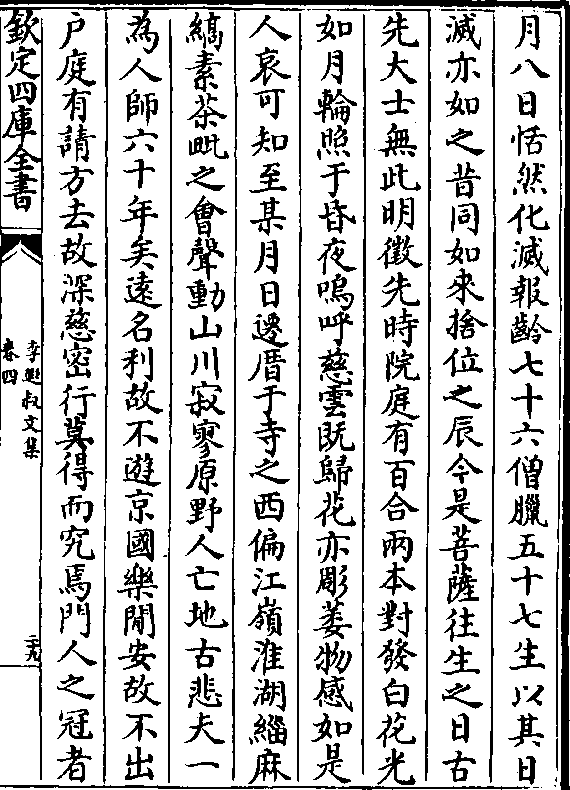 月八日恬然化滅報齡七十六僧臘五十七生以其日
滅亦如之昔同如來捨位之辰今是菩薩往生之日古
先大士無此明徵先時院庭有百合兩本對發白花光
如月輪照于昏夜嗚呼慈雲既歸花亦彫萎物感如是
人哀可知至某月日遷厝于寺之西偏江嶺淮湖緇麻
縞素荼毗之會聲動山川寂寥原野人亡地古悲夫一
為人師六十年矣遠名利故不遊京國樂閒安故不出
户庭有請方去故深慈密行莫得而究焉門人之冠者
欽定四庫全書
李遐叔文集
卷四
二十九